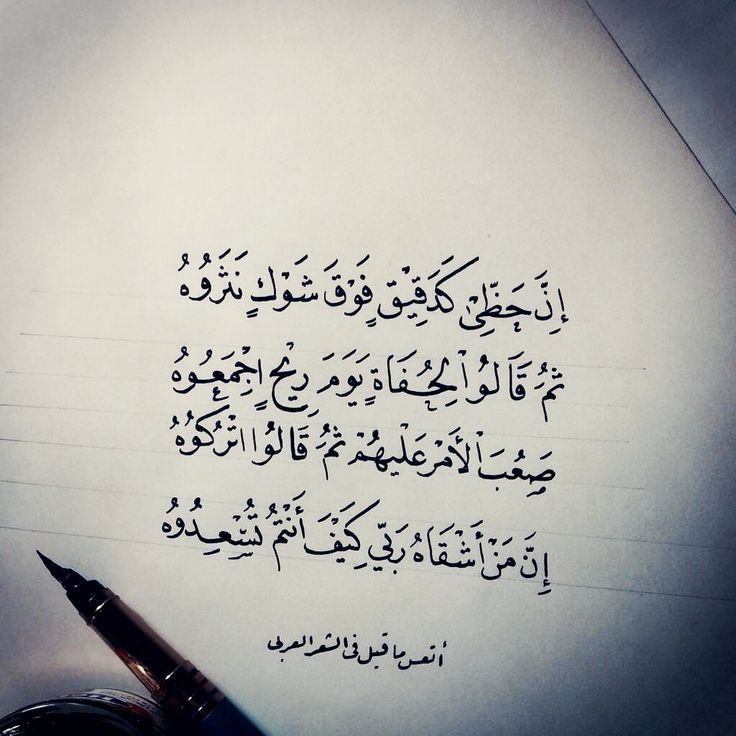 إِنَّ حَظِّيْ كَدَقِيْقٍ فَوْقَ شَوْكٍ نَثَرُوُهُ
ثُمَّ قَالُوُا لِحُفَاةٍ يَوَمَ رِيْحٍ اِجْمَعُوُهُ
صَعُبَ الْأَمْرَ عَلَيْهُمْ ثُمَّ قَالُوُا اتْرُكُوُهُ
إِنَّ مَنْ أَشْقَاهُ رَبّي كَيْفَ أَنْتُمْ تُسْعِدُوُهُ
أتعس ما قيل في الشعر العربي